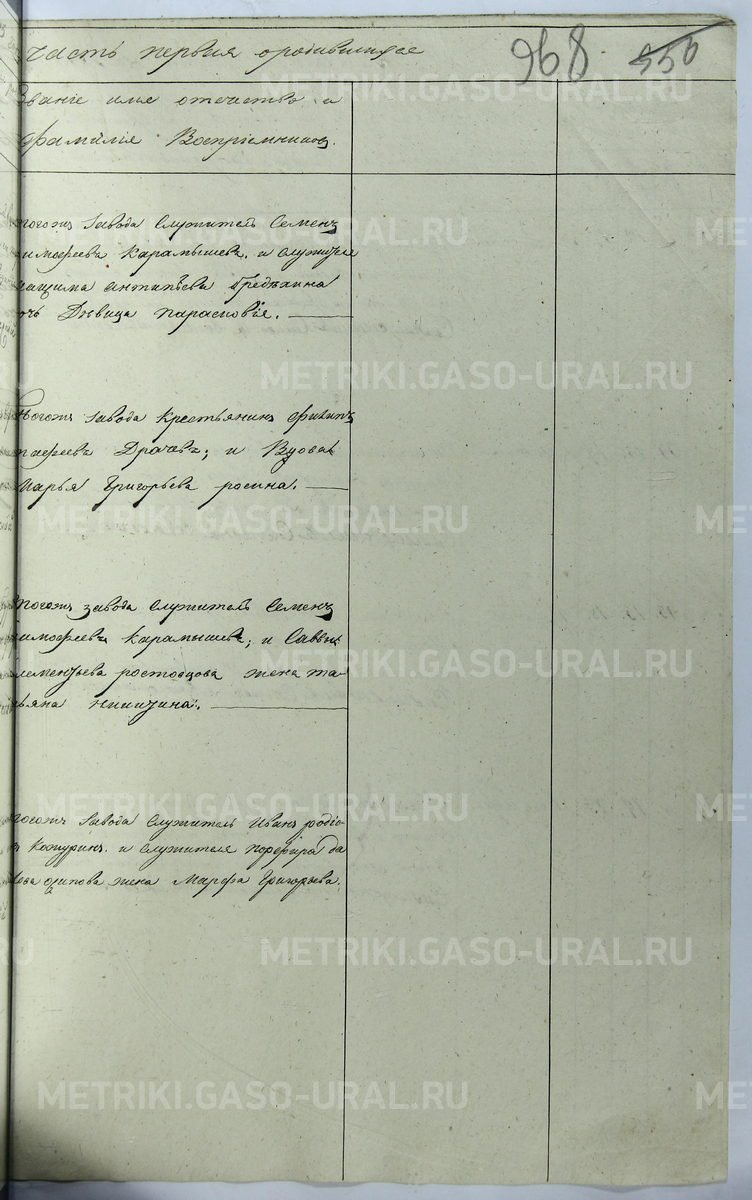 часть первая ородившихся
968 556
Званіе имя отечество и
фамилія Воспріемников
тогожъ завода Служитель Семенъ
имофеевъ Карамышевъ. и служителя
антипьева Гредякина
очь Дѣвица Парасповіе.
тогожъ завода крестьянинъ Филипъ
Драчевъ; и Вдова
Марья Григорьева росина.
тогожъ завода Служитель Семенъ
имофеевъ Карамышевъ; и Саввы
лементьева ростовцова жена та
ьяна никитина.
тогожъ завода Служитель Иванъ родіо
въ Кожуринъ. и служителя порфира да
осипова жена Марфа Григорьева.
METRIKI.GASO-URAL.RU